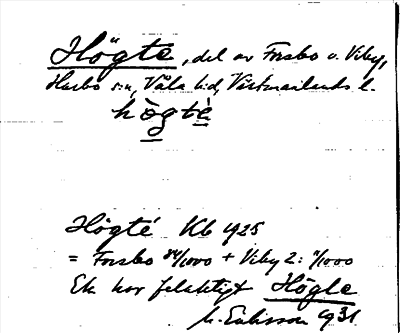 Högte, del av Forsbo o. Viby,
Harbo s:n, Våla h:d, Västmanlands l.
högtè
Högté Kb 1925
= Forsbo 84/1000 + Viby 2:
Ek har felaktigt Högle
M. Eriksson 1931